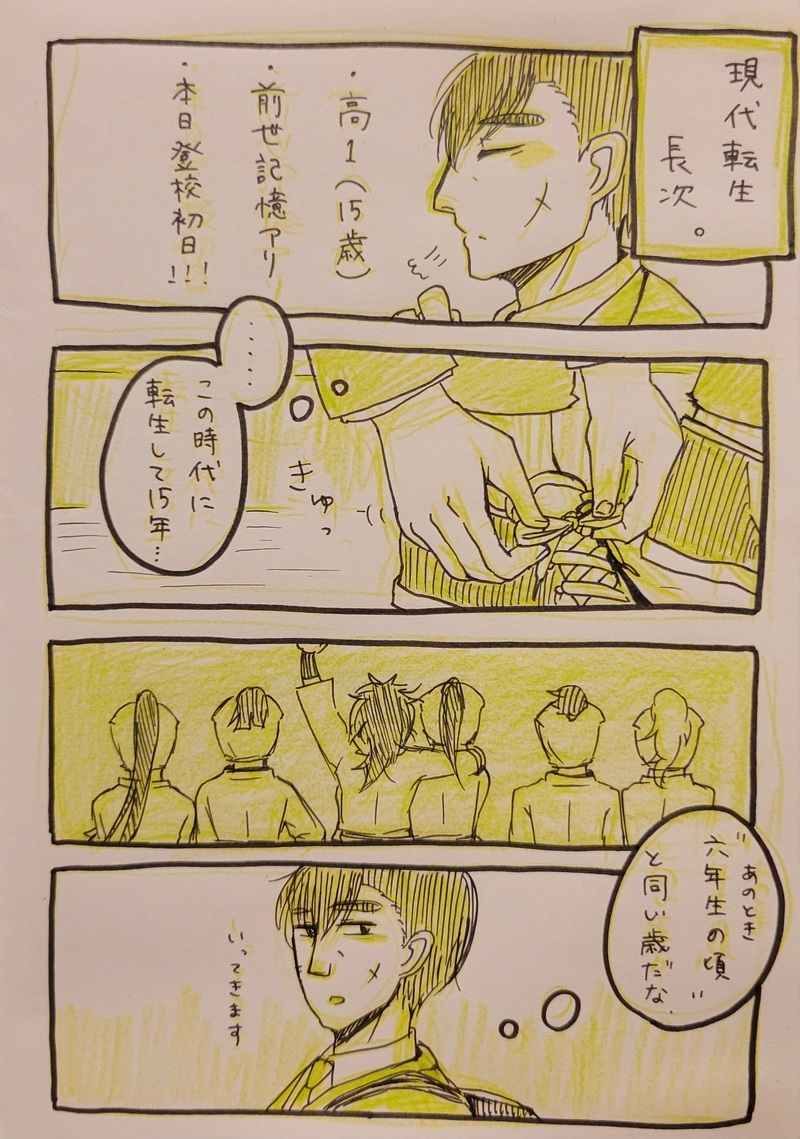 現代転生
長次。
・高1(15歳)
・前世記憶アリ
・本日登校初日!!!
・・・・・
この時代に
転生して15年…
きゅっ
あのとき
"六年生の頃"
と同い歳だな、
いってきます